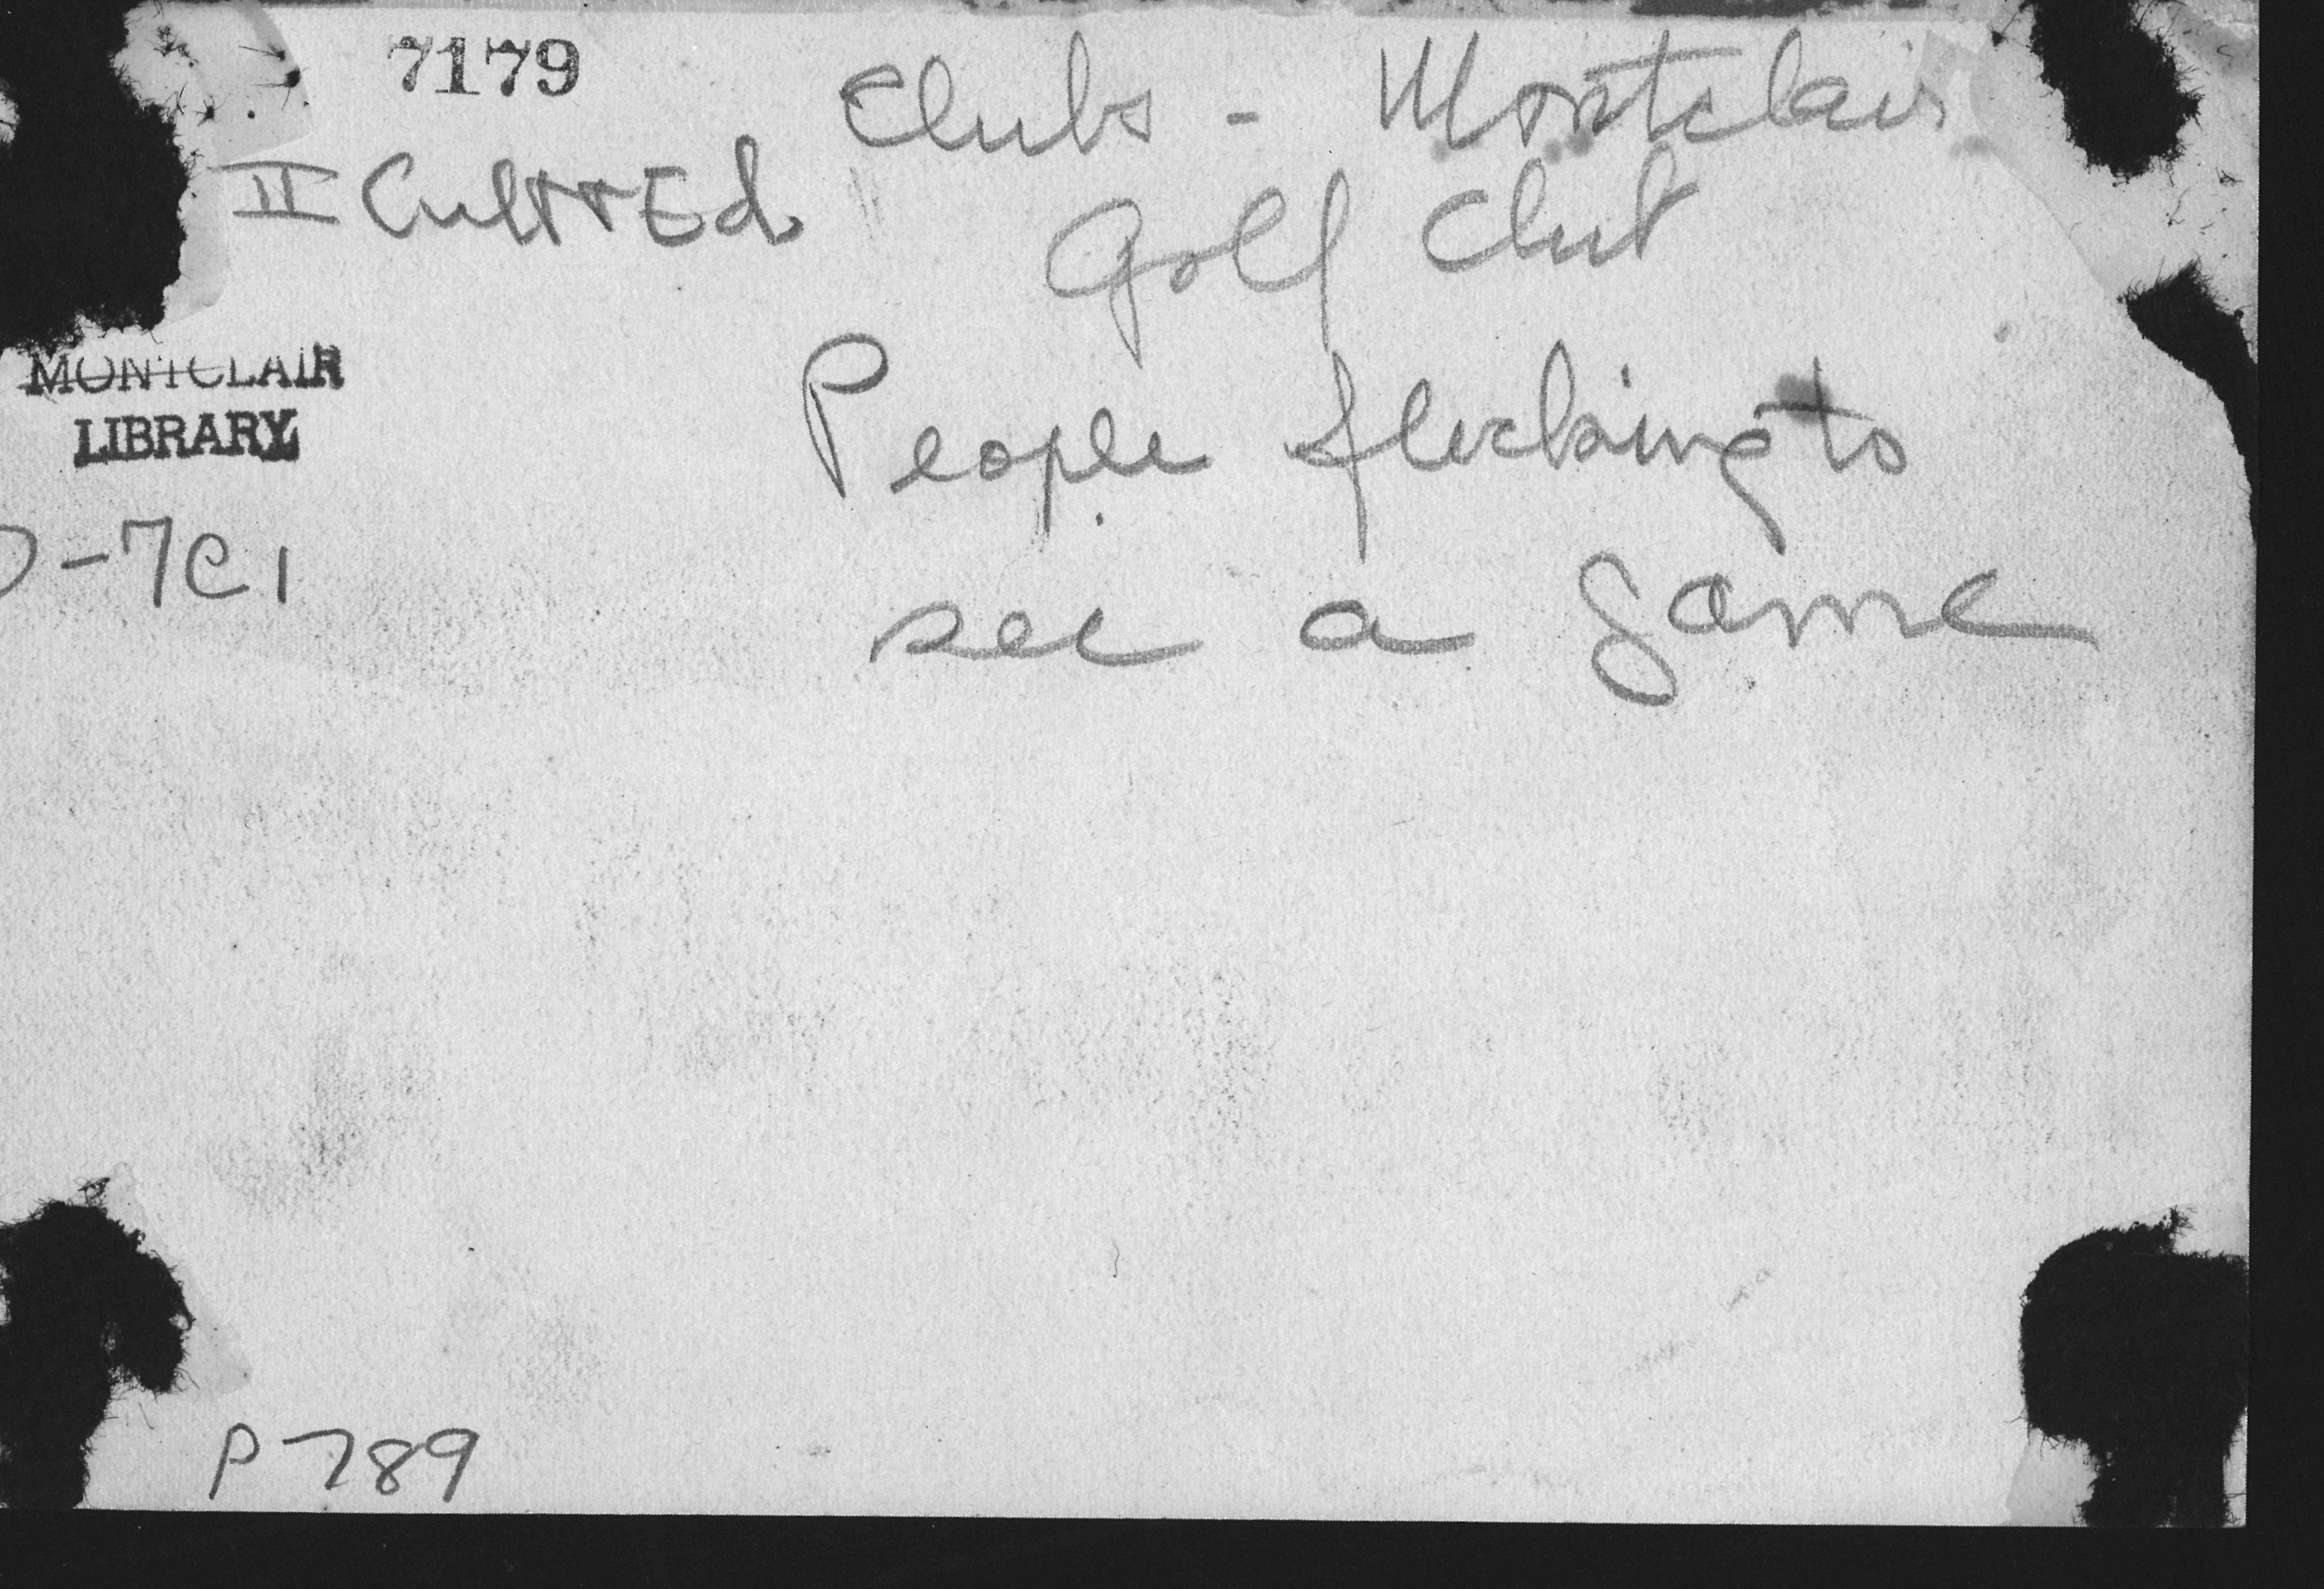 7179
Clubs - Montclair
II Cult + Ed
Golf Club
MONTCLAIR
LIBRARY
People flocking to
-7C1
see a game
P789